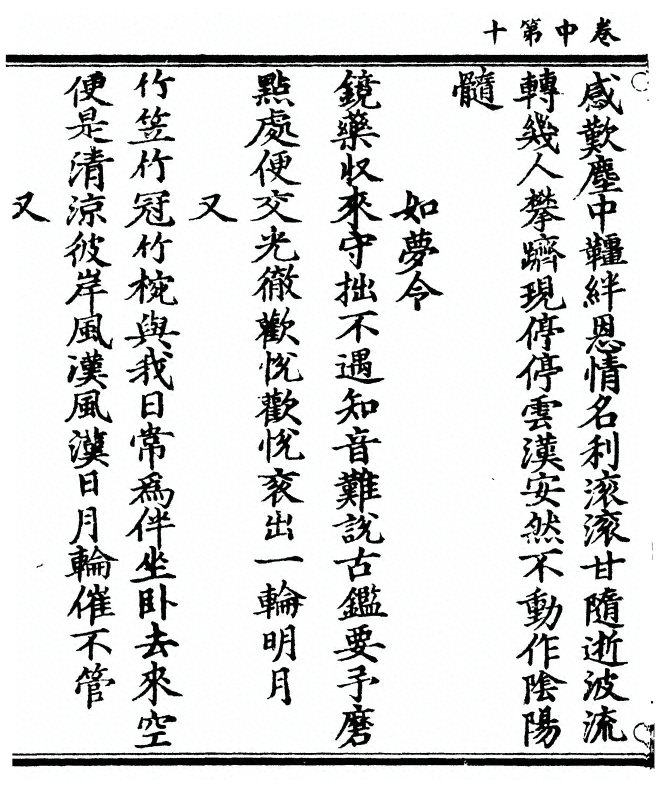 卷中第十
感歎塵中韁絆恩情名利滚滚甘隨逝波流
轉幾人攀躋現停停雲漢安然不動作陰陽
髓
如夢令
鏡藥収來守拙不遇知音難說古鑑要予磨
點處便交光徹歡悅歡悅衮出一輪明月
又
竹笠竹冠竹椀與我日常爲伴坐卧去來空
便是清涼彼岸風漢風漢日月輪催不管
又